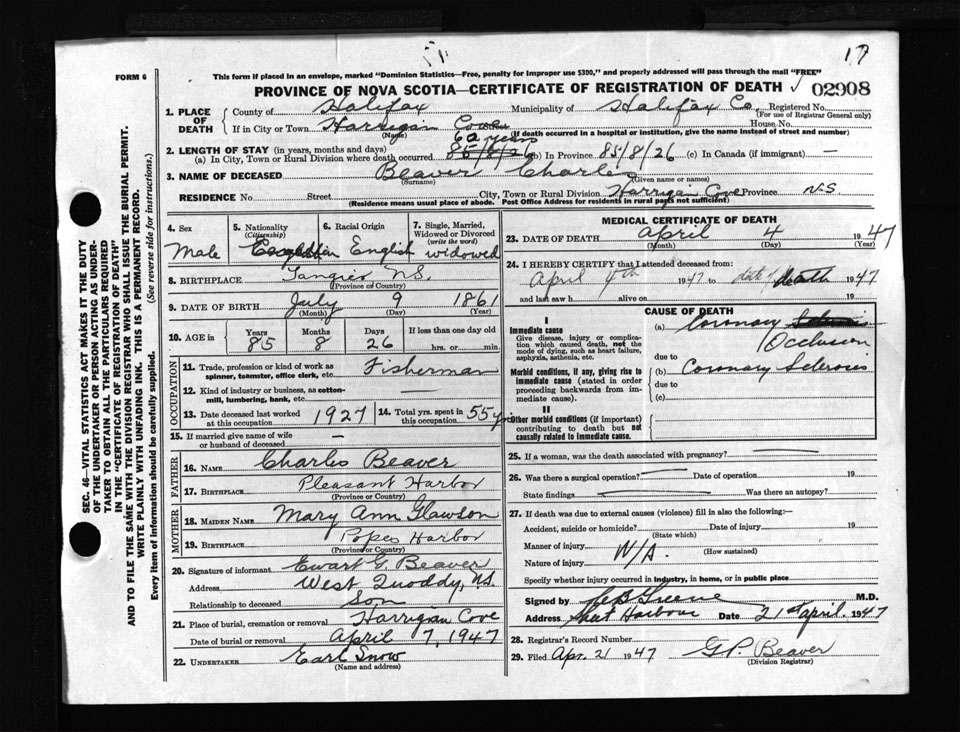 17
FORM 6
This form if placed in an envelope, marked "Dominion Statistics—Free, penalty for improper use $300," and properly addressed will pass through the mail "FREE"
PROVINCE OF NOVA SCOTIA—CERTIFICATE OF REGISTRATION OF DEATH √ 02908
1. PLACE OF DEATH County of Halifax Municipality of Halifax Co. Registered No.
(For use of Registrar General only)
If in City or Town Harrigan Cove Street House No.
(Name) (If death occurred in a hospital or institution, give the name instead of street and number)
62 years
2. LENGTH OF STAY (in years, months and days)
(a) In City, Town or Rural Division where death occurred 85/8/26 (b) In Province 85/8/26 (c) In Canada (if immigrant) —
3. NAME OF DECEASED Beaver Charles
(Surname) (Given name or names)
RESIDENCE No. Street City, Town or Rural Division Harrigan Cove Province N.S.
(Residence means usual place of abode. Post Office Address for residents in rural parts not sufficient)
4. Sex Male
5. Nationality (Citizenship) Canadian
6. Racial Origin English
7. Single, Married, Widowed or Divorced (write the word) widowed
8. BIRTHPLACE Tangier N.S.
(Province or Country)
9. DATE OF BIRTH July 9 1861
(Month) (Day) (Year)
10. AGE in Years 85 Months 8 Days 26 If less than one day old hrs. or min.
OCCUPATION
11. Trade, profession or kind of work as spinner, teamster, office clerk, etc. Fisherman
12. Kind of industry or business, as cotton-mill, lumbering, bank, etc.
13. Date deceased last worked at this occupation 1927
14. Total yrs. spent in this occupation 55 yrs
15. If married give name of wife or husband of deceased —
FATHER
16. NAME Charles Beaver
17. BIRTHPLACE Pleasant Harbor
(Province or Country)
MOTHER
18. MAIDEN NAME Mary Ann Glawson
19. BIRTHPLACE Popes Harbor
(Province or Country)
20. Signature of informant Ewart G. Beaver
Address West Quoddy, N.S.
Relationship to deceased Son
21. Place of burial, cremation or removal Harrigan Cove
Date of burial or removal April 7, 1947
22. UNDERTAKER Earl Snow
(Name and address)
MEDICAL CERTIFICATE OF DEATH
23. DATE OF DEATH April 4 1947
(Month) (Day) (Year)
24. I HEREBY CERTIFY that I attended deceased from:
April 4th 1947 to date of death 1947
and last saw h alive on 19
CAUSE OF DEATH
I
Immediate cause
Give disease, injury or complication which caused death, not the mode of dying, such as heart failure, asphyxia, asthenia, etc.
(a) Coronary Occlusion
due to
Morbid conditions, if any, giving rise to immediate cause (stated in order proceeding backwards from immediate cause).
(b) Coronary Sclerosis
due to
(c)
II
Other morbid conditions (if important) contributing to death but not causally related to immediate cause.
25. If a woman, was the death associated with pregnancy?
26. Was there a surgical operation? Date of operation 19
State findings Was there an autopsy?
27. If death was due to external causes (violence) fill in also the following:—
Accident, suicide or homicide? Date of injury 19
(State which)
Manner of injury N/A.
(How sustained)
Nature of injury
Specify whether injury occurred in industry, in home, or in public place
Signed by Greene M.D.
Address Sheet Harbour Date 21st April. 1947
28. Registrar's Record Number
29. Filed Apr. 21 1947 G P. Beaver
(Division Registrar)
SEC. 46—VITAL STATISTICS ACT MAKES IT THE DUTY
OF THE UNDERTAKER OR PERSON ACTING AS UNDER-
TAKER TO OBTAIN ALL THE PARTICULARS REQUIRED
IN THE "CERTIFICATE OF REGISTRATION OF DEATH"
AND TO FILE THE SAME WITH THE DIVISION REGISTRAR WHO SHALL ISSUE THE BURIAL PERMIT.
WRITE PLAINLY WITH UNFADING INK. THIS IS A PERMANENT RECORD.
Every item of information should be carefully supplied. (See reverse side for instructions.)